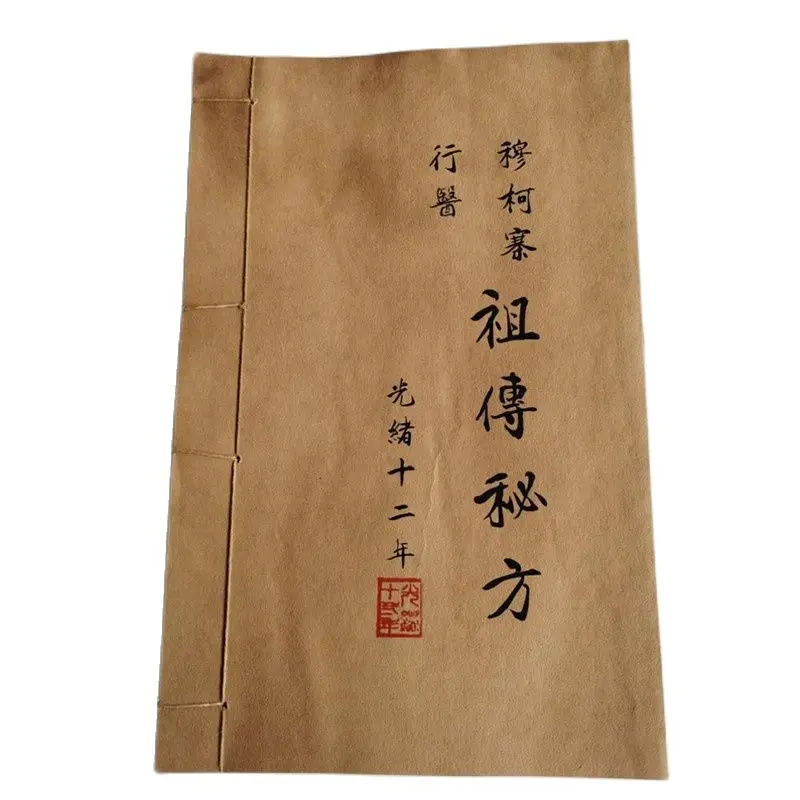 穆柯寨
祖傳秘方
行醫
光緒十二年